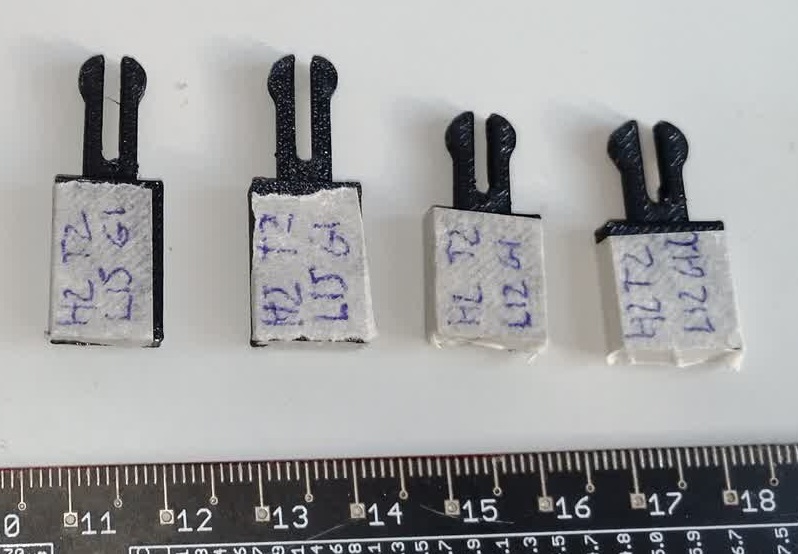 H2 T2
L15 G1
H2 T2
L15 G1
H2 T2
L12 G1
H2 T2
L12
11 12 13 14 15 16 17 18